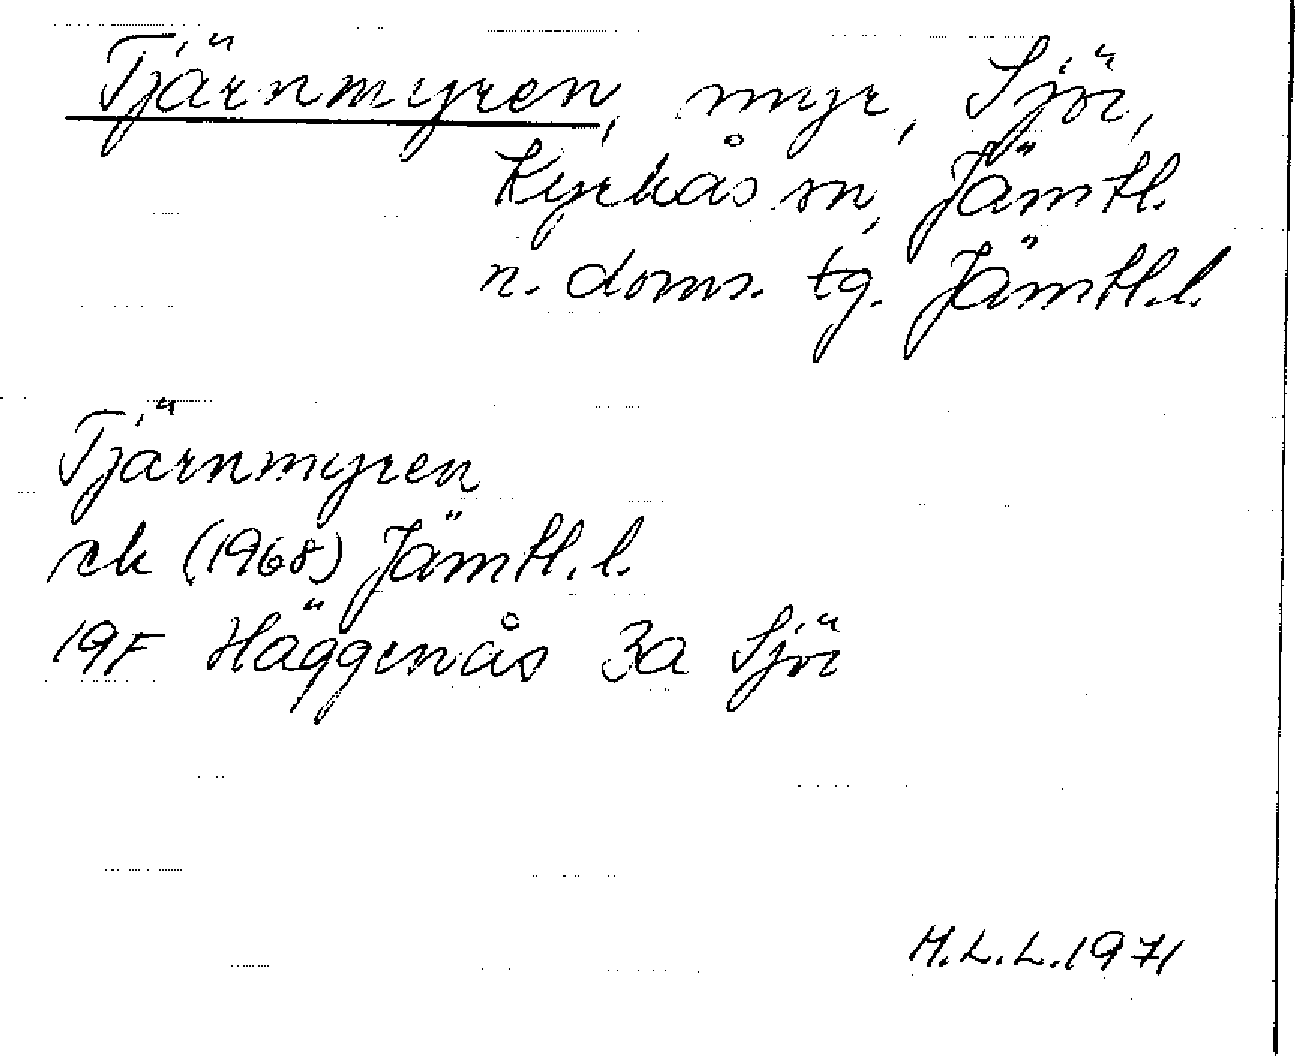 Tjärnmyren, myr, Sjör,
Kyrkås sn, Jämtl.
n. doms. tg. Jämtl.l.
Tjärnmyren
ek (1968) Jämtl.l.
19F Häggenås 3a Sjör
M.L.L.1971